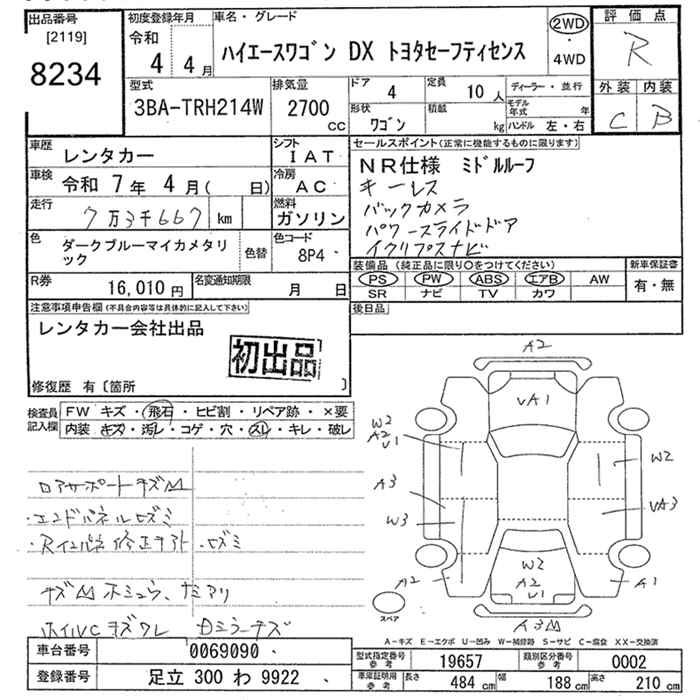 出品番号
[2119]
8234
初度登録年月
令和
4 4月
車名・グレード
ハイエースワゴン DX トヨタセーフティセンス
2WD
・
4WD
評価点
R
外装 内装
C B
型式
3BA-TRH214W
排気量
2700
CC
ドア
4
定員
10 人
形状
ワゴン
積載
kg
ディーラー・並行
モデル年式 年
ハンドル 左・右
車歴
レンタカー
シフト
IAT
車検
令和 7年 4月( 日)
冷房
AC
走行
7万3千667 km
燃料
ガソリン
色
ダークブルーマイカメタリ
ック
色替
色コード
8P4
R券
16,010円
名変通知期限
月 日
セールスポイント(正常に機能するものに限ります)
NR仕様 ミドルルーフ
キーレス
バックカメラ
パワースライドドア
イクリプスナビ
装備品(純正品に限り○をつけてください)
PS PW ABS エアB AW
SR ナビ TV カワ
新車保証書
有・無
後日品
注意事項申告欄(不具合内容等は具体的に記入して下さい)
レンタカー会社出品
初出品
修復歴 有〔箇所 〕
検査員
記入欄
FW キズ・飛石・ヒビ割・リペア跡・×要
内装 キズ・汚レ・コゲ・穴・スレ・キレ・破レ
ロアサポートキズM
・エンドパネルヒズミ
・Rインパネ修正チアト・ヒズミ
キズM ホミュウ、ナミアリ
ホイルCキズワレ Dミラーキズ
A2
VA1
W2
A2
U1
W2
A3
W3
VA3
A2
W2
A2
U1
A1
A3M
スペア
A-キズ E-エクボ U-凹み W-補修跡 S-サビ C-腐食 XX-交換済
車台番号
0069090
登録番号
足立 300 わ 9922
型式指定番号
参考
19657
類別区分番号
参考
0002
車庫証明用
参考
長さ 484 cm 幅 188 cm 高さ 210 cm